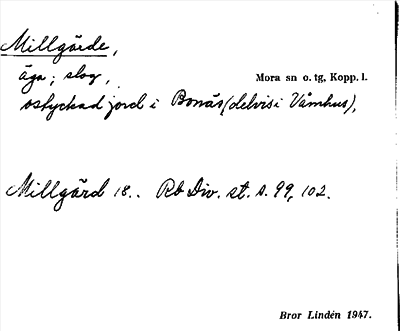 Millgärde,
äga; slog,
Mora sn o. tg, Kopp. l.
ostyckad jord i Bonäs (delvis i Våmhus),
Millgärd 18.. Rb Div. st. s. 99, 102.
Bror Lindén 1947.